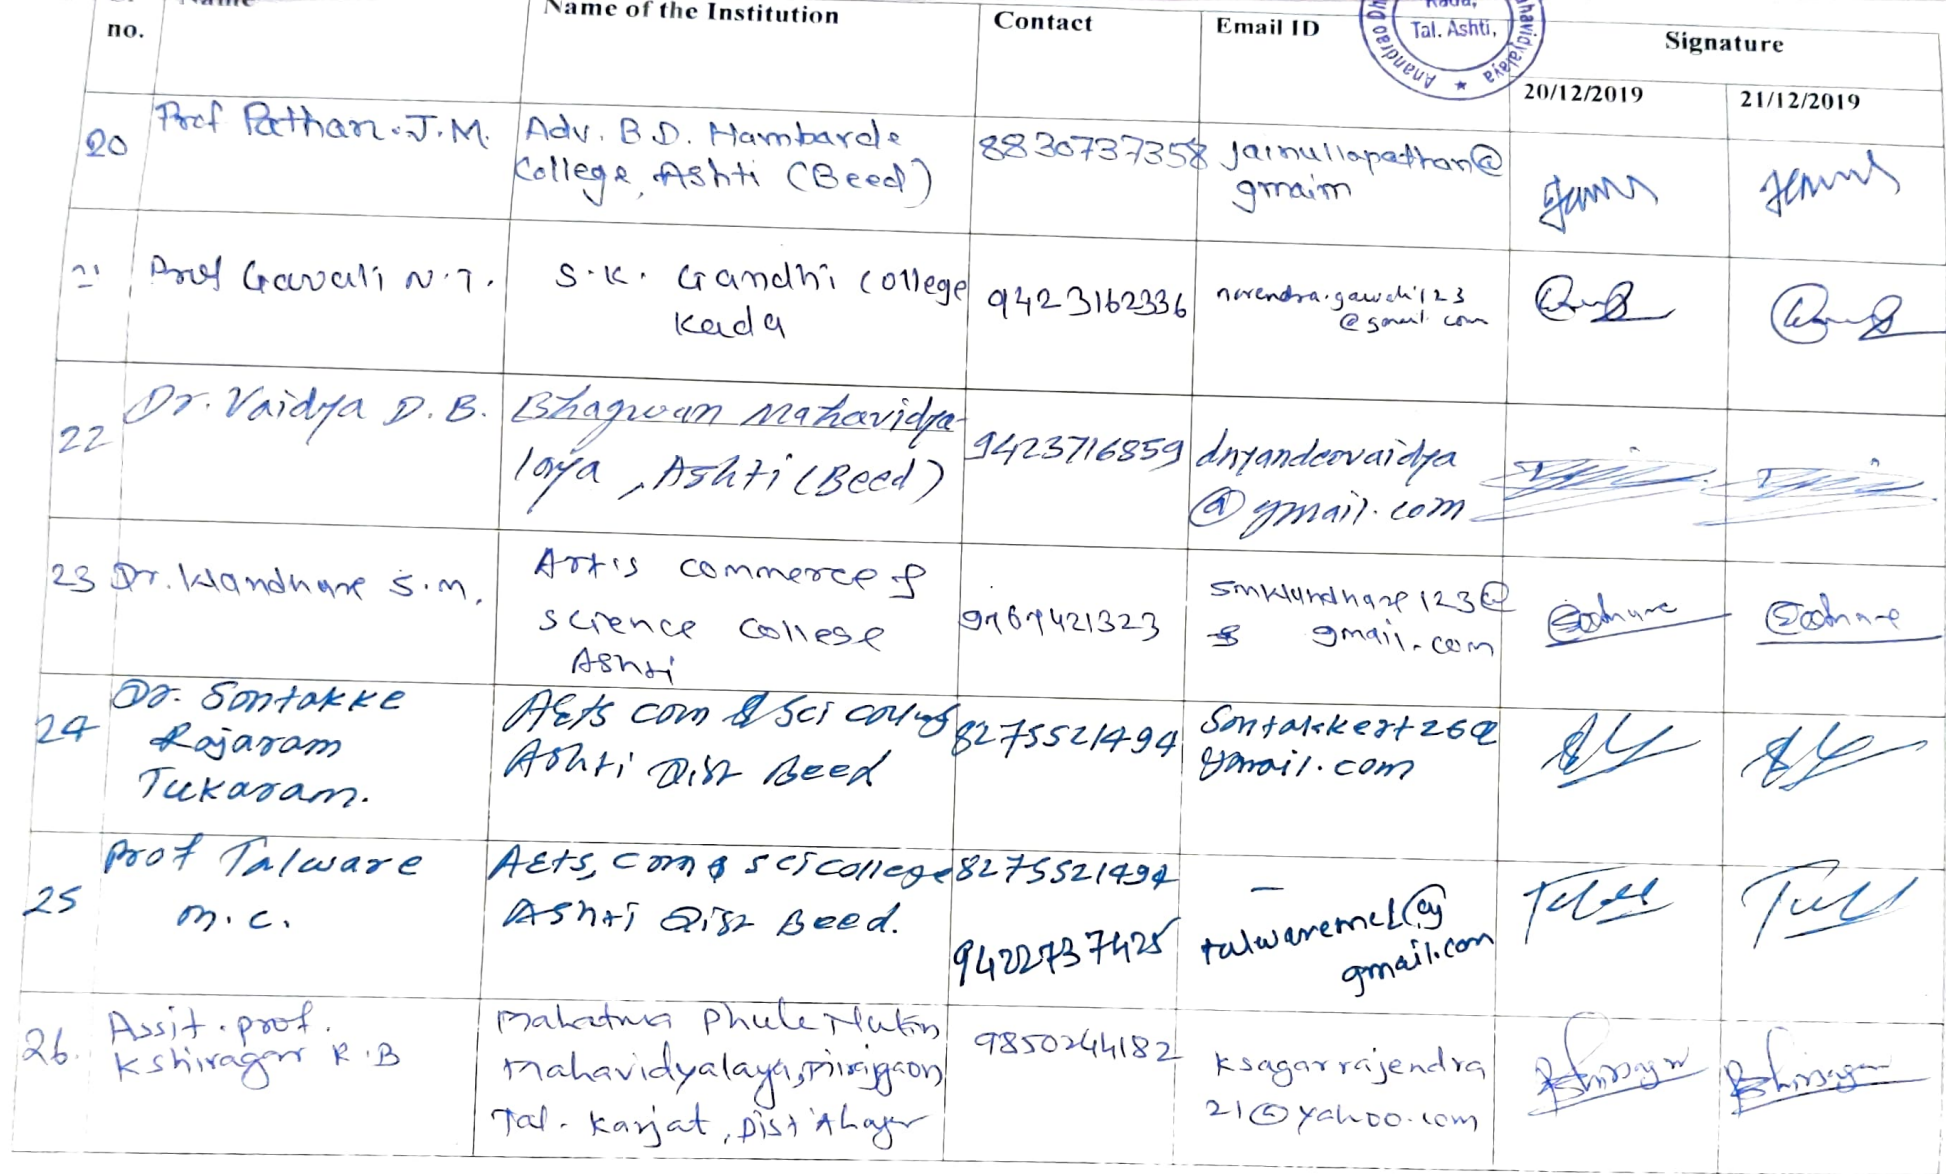 no.
Name
Name of the Institution
Contact
Email ID
Signature
20/12/2019
21/12/2019
Kada,
Tal. Ashti,
Anandrao Dh
havidyalaya
20
Prof Pathan. J. M.
Adv. B.D. Hambarde
College, Ashti (Beed)
8830737358
jainullapathan@
gmaim
21
Prof Gavali N.T.
S.K. Gandhi College
Kada
9423162336
narendra.gawali123
@gmail.com
22
Dr. Vaidya D.B.
Bhagwan Mahavidya-
laya, Ashti (Beed)
9423716859
dnyandeovaidya
@gmail.com
23
Dr. Klandhare S.M,
Arts commerce &
science college
Ashti
421323
123@
gmail.com
24
Dr. Sontakke
Rajaram
Tukaram.
Arts com & Sci
Ashti Dist Beed
8275521494
Sontakkert26@
gmail.com
25
Prof Talware
M.C.
Arts, com & sci college
Ashti Dist Beed.
8275521494
9422737425
—
@
gmail.com
26.
Assit. prof.
Kshiragar R.B
Mahatma Phule Nutan
Mahavidyalaya, Mirajgaon
Tal. Karjat, Dist A'nagar
9850244182
ksagarrajendra
21@yahoo.com